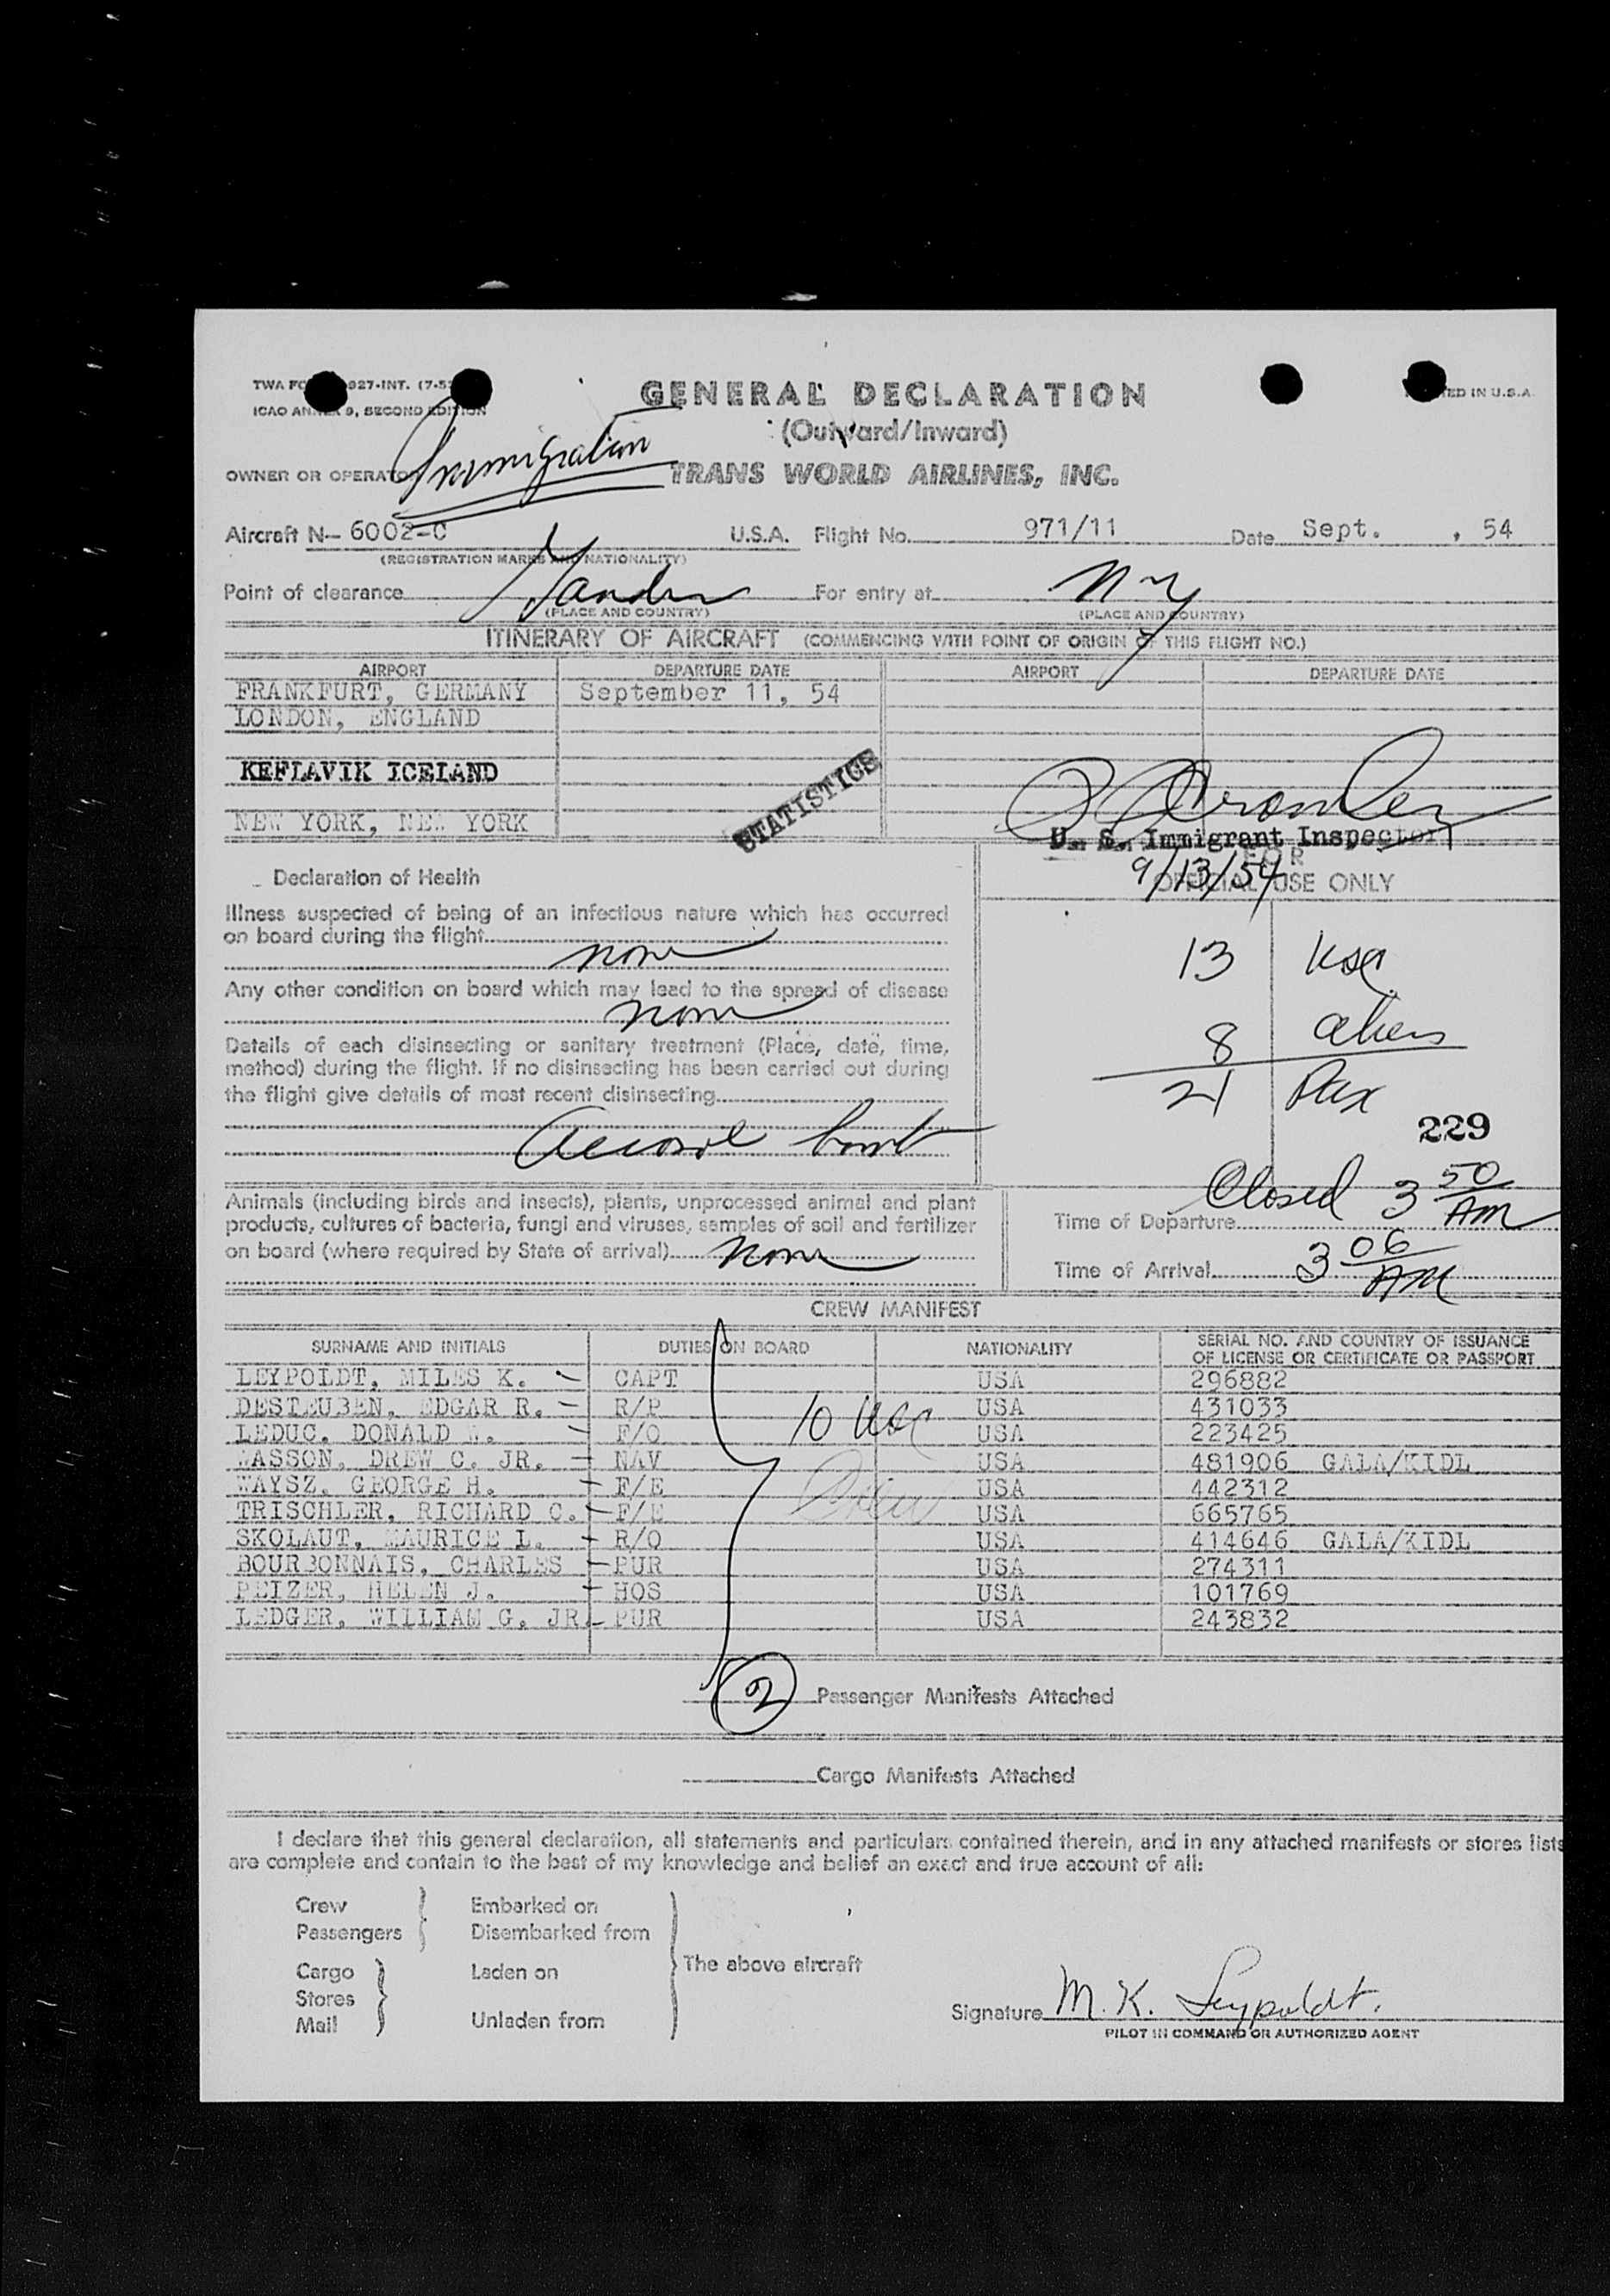 TWA FO 927-INT. (7-5
GENERAL DECLARATION
TED IN U.S.A.
ICAO ANNEX 9, SECOND EDITION
(Outward/Inward)
Immigration
OWNER OR OPERATOR TRANS WORLD AIRLINES, INC.
Aircraft N- 6002-C U.S.A. Flight No. 971/11 Date Sept. , 54
(REGISTRATION MARKS AND NATIONALITY)
Point of clearance Gander For entry at NY
(PLACE AND COUNTRY) (PLACE AND COUNTRY)
ITINERARY OF AIRCRAFT (COMMENCING WITH POINT OF ORIGIN OF THIS FLIGHT NO.)
AIRPORT DEPARTURE DATE AIRPORT DEPARTURE DATE
FRANKFURT, GERMANY September 11, 54
LONDON, ENGLAND
KEFLAVIK ICELAND
STATISTICS
NEW YORK, NEW YORK
U. S. Immigrant Inspector
9/13/54
FOR
OFFICIAL USE ONLY
Declaration of Health
Illness suspected of being of an infectious nature which has occurred
on board during the flight
none
Any other condition on board which may lead to the spread of disease
none
Details of each disinsecting or sanitary treatment (Place, date, time,
method) during the flight. If no disinsecting has been carried out during
the flight give details of most recent disinsecting
Aerosol bomb
13 usc
8 aliens
21 Pax
229
Animals (including birds and insects), plants, unprocessed animal and plant
products, cultures of bacteria, fungi and viruses, samples of soil and fertilizer
on board (where required by State of arrival) none
Closed 3 50 AM
Time of Departure
Time of Arrival 3 06 AM
CREW MANIFEST
SURNAME AND INITIALS DUTIES ON BOARD NATIONALITY SERIAL NO. AND COUNTRY OF ISSUANCE
OF LICENSE OR CERTIFICATE OR PASSPORT
LEYPOLDT, MILES K. CAPT USA 296882
DESTEUBEN, EDGAR R. R/P USA 431033
LEDUC, DONALD F/O USA 223425
WASSON, DREW C. JR. NAV USA 481906 GALA/KIDL
WAYSZ, GEORGE H. F/E USA 442312
TRISCHLER, RICHARD C. F/E USA 665765
SKOLAUT, MAURICE L. R/O USA 414646 GALA/KIDL
BOURBONNAIS, CHARLES PUR USA 274311
PEIZER, HELEN J. HOS USA 101769
LEDGER, WILLIAM G. JR. PUR USA 243832
10 usc
2 Passenger Manifests Attached
Cargo Manifests Attached
I declare that this general declaration, all statements and particulars contained therein, and in any attached manifests or stores lists
are complete and contain to the best of my knowledge and belief an exact and true account of all:
Crew Embarked on
Passengers Disembarked from
The above aircraft
Cargo Laden on
Stores
Mail Unladen from
Signature M. K. Leypoldt.
PILOT IN COMMAND OR AUTHORIZED AGENT